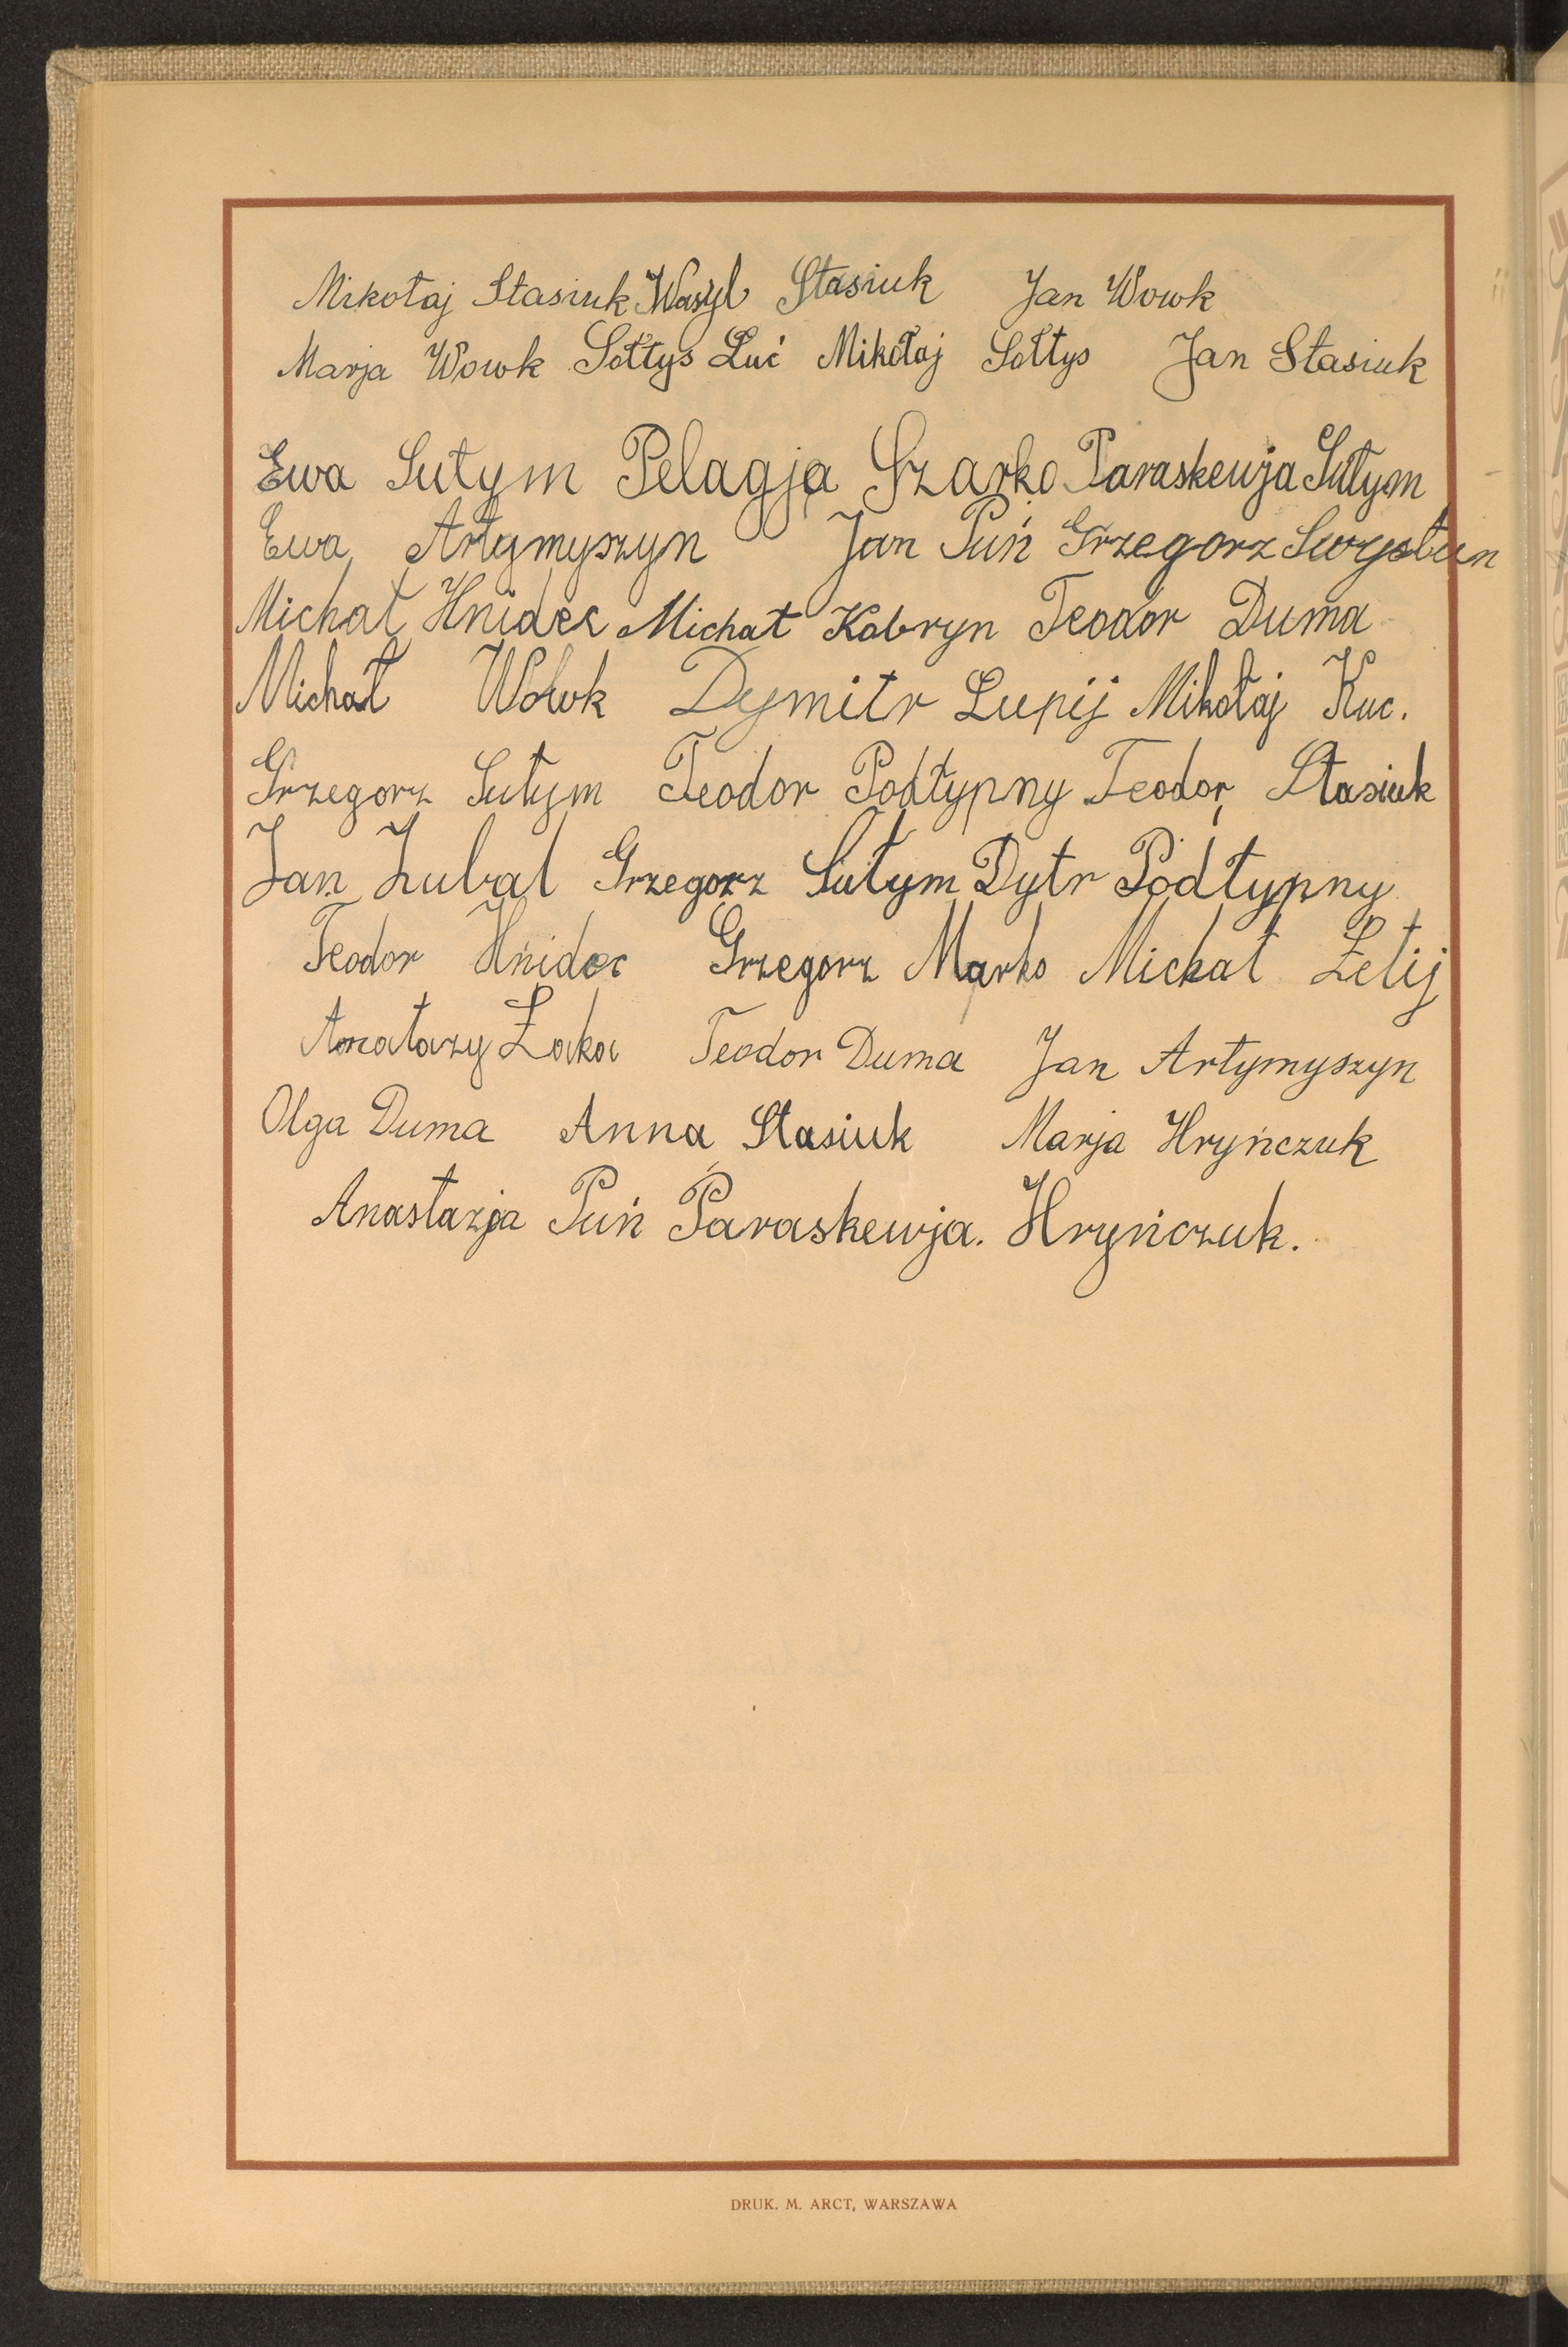 Mikołaj Stasiuk Wasyl Stasiuk Jan Wowk
Marja Wowk Sołtys Luć Mikołaj Sołtys Jan Stasiuk
Ewa Sutym Pelagja Szarko Paraskewja Sutym
Ewa Artymyszyn Jan Puń Grzegorz Swystun
Michał Hnidec Michał Kobryn Teodor Duma
Michał Wowk Dymitr Lupij Mikołaj Kuc.
Grzegorz Sutym Teodor Podłypny Teodor Stasiuk
Jan Zubal Grzegorz Sutym Dytr Podłypny
Teodor Hnidec Grzegorz Marko Michał
Teodor Duma Jan Artymyszyn
Olga Duma Anna Stasiuk Marja Hryńczuk
Anastazja Puń Paraskewja. Hryńczuk.
DRUK. M. ARCT, WARSZAWA